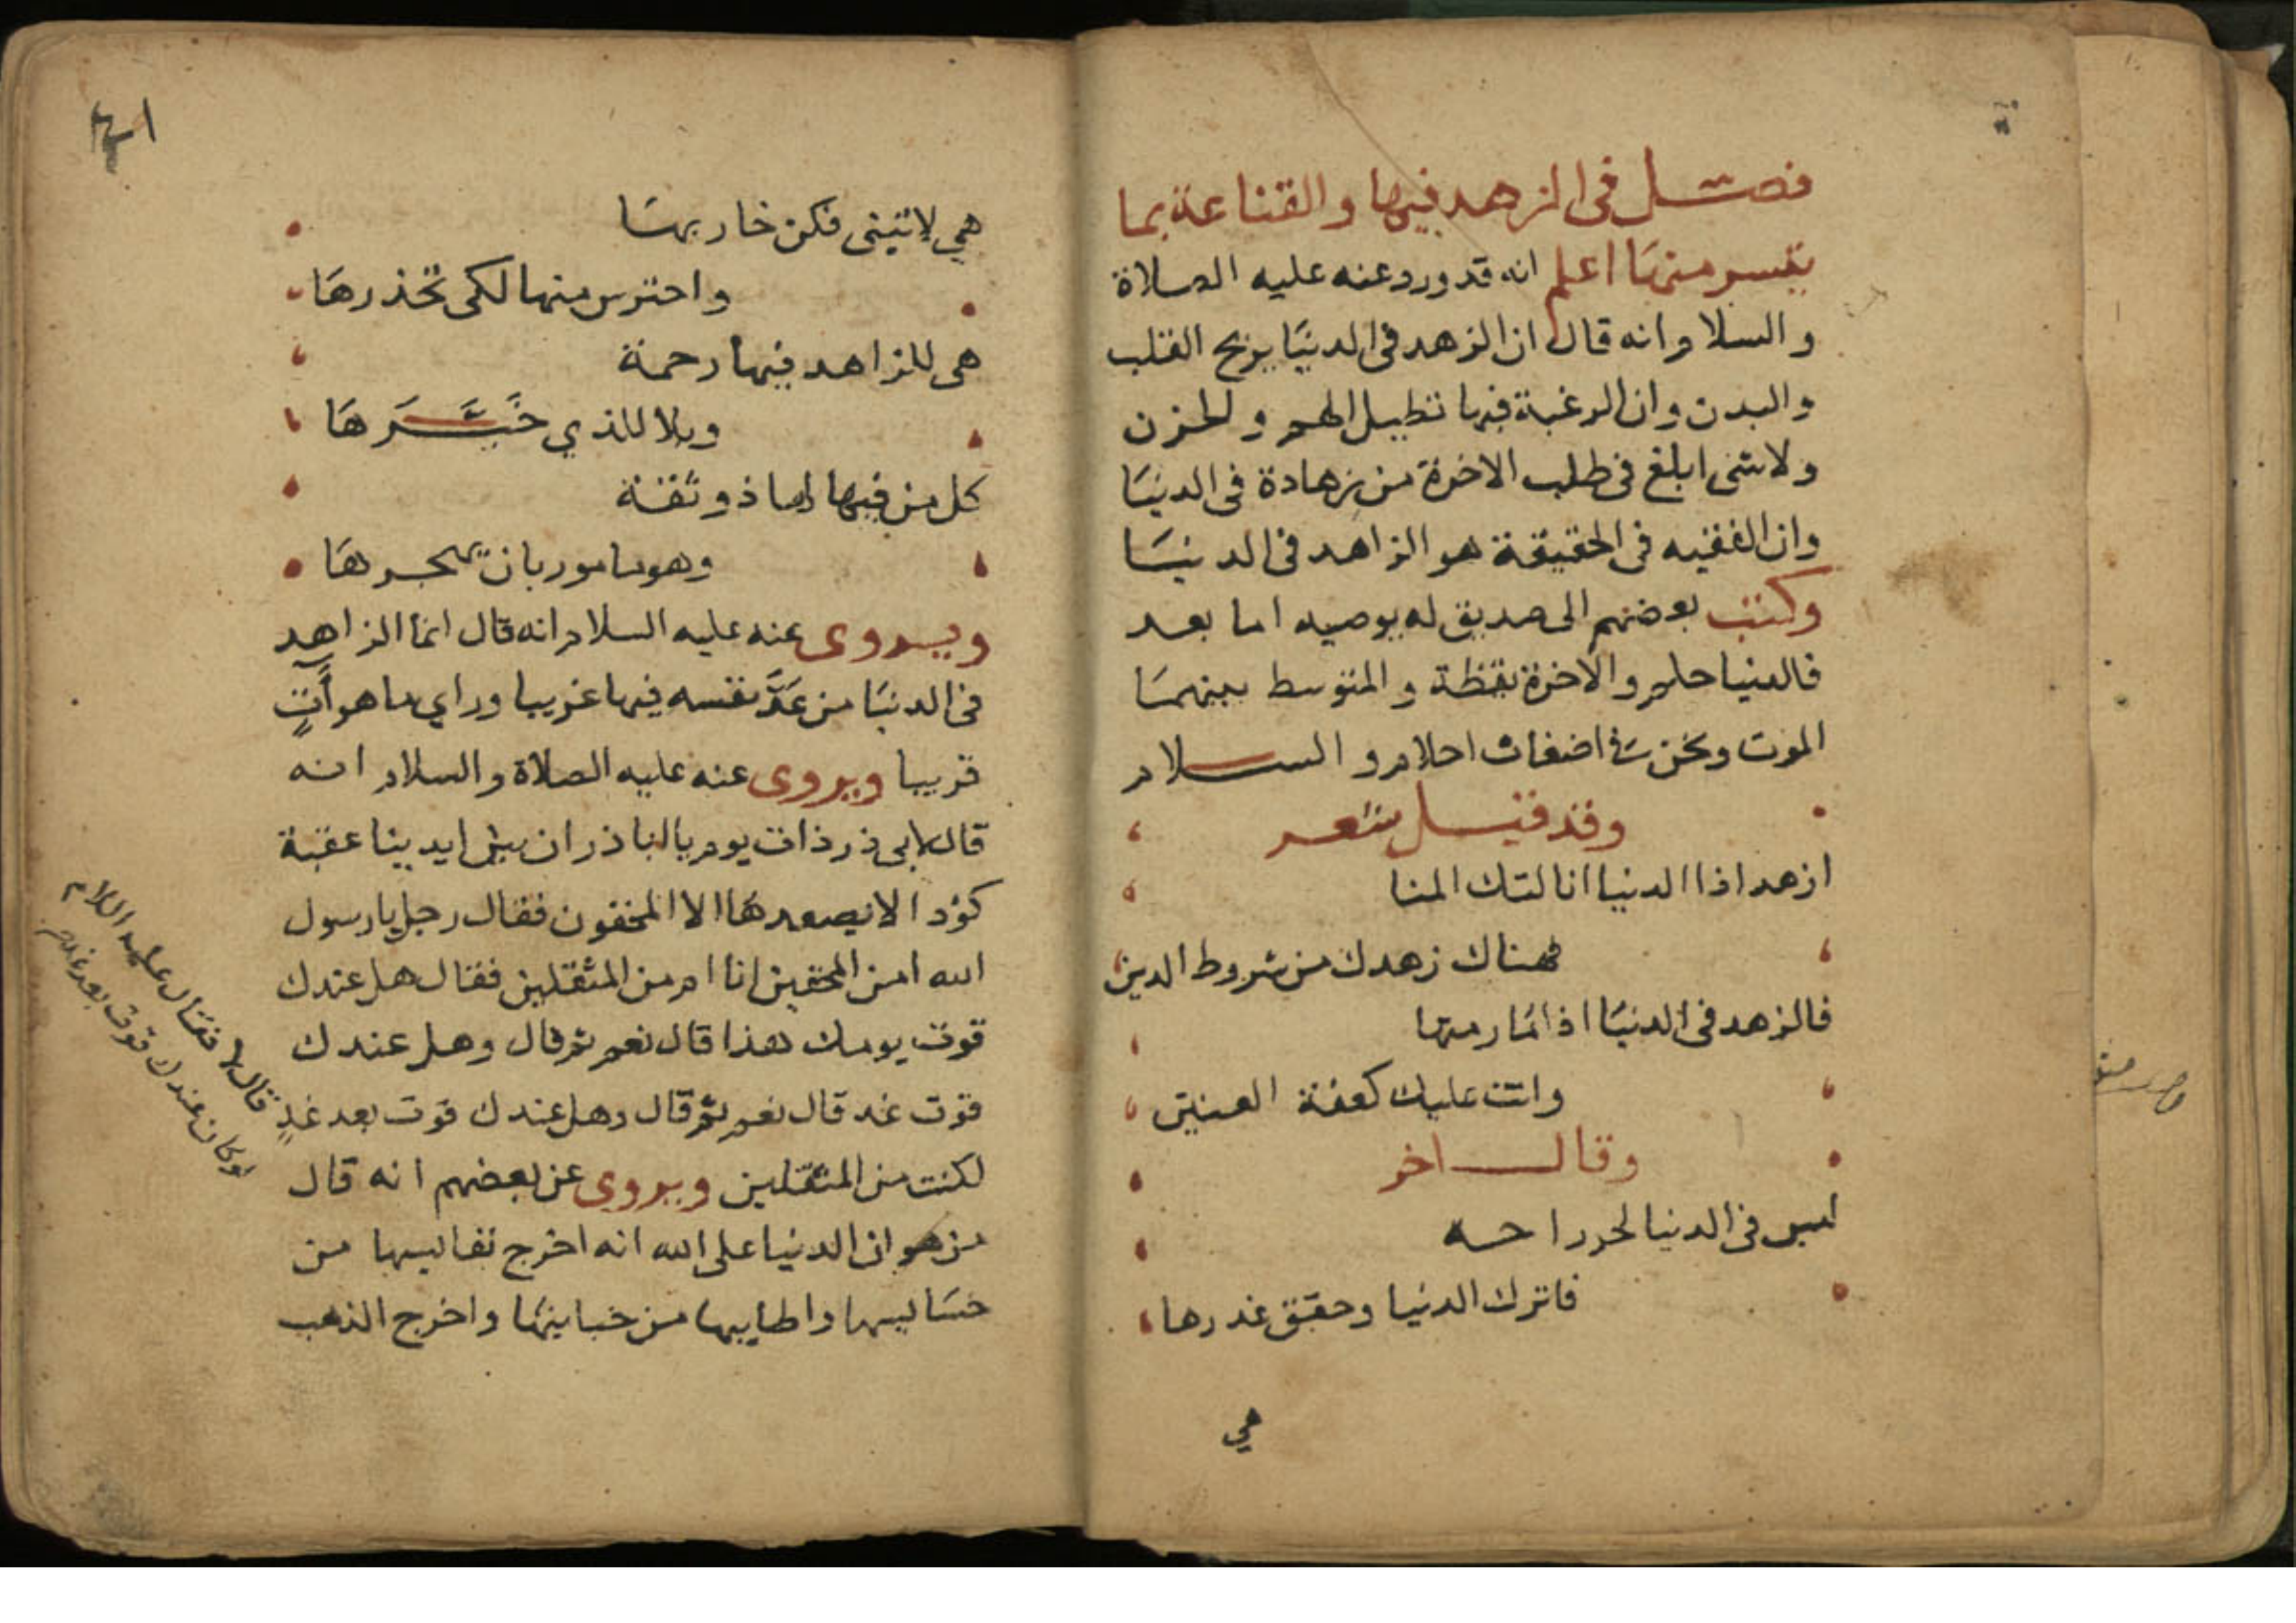 فصل في الزهد فيها والقناعة بما
تيسر منها اعلم انه قد ورد عنه عليه الصلاة
والسلام انه قال ان الزهد في الدنيا يريح القلب
والبدن وان الرغبة فيها تطيل الهم والحزن
ولا شئ ابلغ في طلب الاخرة من زهادة في الدنيا
وان الفقيه في الحقيقة هو الزاهد في الدنيا
وكتب بعضهم الى صديق له يوصيه اما بعد
فالدنيا حلم والاخرة يقظة والمتوسط بينهما
الموت ونحن في اضغاث احلام والسلام
وقد قيل شعر
ازهد اذا الدنيا انالتك المنا
فهناك زهدك من شروط الدين
فالزهد في الدنيا اذا ما رمتها
وابت عليك كعفة العنين
وقال اخر
ليس في الدنيا لحر راحه
فاترك الدنيا وحقق غدرها
هي
هي لا تبقى فكن خار بها
واحترس منها لكي تحذرها
هي للزاهد فيها رحمة
وبلا للذي خبرها
كل من فيها لها ذو ثقة
وهو مامور بان يهجرها
ويروى عنه عليه السلام انه قال انما الزاهد
في الدنيا من عَدَّ نفسه فيها غريبا وراي ما هو آتٍ
قريبا ويروى عنه عليه الصلاة والسلام انه
قال لابي ذر ذات يوم يا ابا ذر ان بين ايدينا عقبة
كؤدا لا يصعدها الا المخفون فقال رجل يا رسول
الله امن المخفين انا ام من المثقلين فقال هل عندك
قوت يومك هذا قال نعم ثم قال وهل عندك
قوت غد قال نعم ثم قال وهل عندك قوت بعد غدٍ
قال لا فقال عليه السلام
لو كان عندك قوت بعد غد
لكنت من المثقلين ويروى عن بعضهم انه قال
من هوان الدنيا على الله انه اخرج نفايسها من
خسايسها واطايبها من خباينها واخرج الذهب